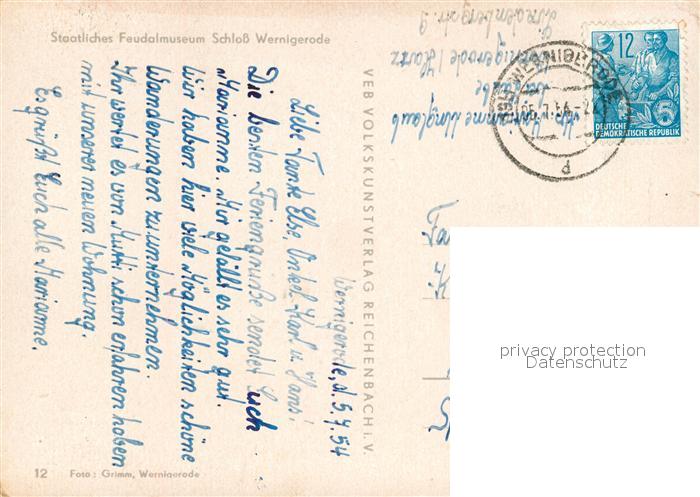 Staatliches Feudalmuseum Schloß Wernigerode
Wernigerode, d. 5.7.54
Liebe Tante Else, Onkel Karl u. Hans!
Die besten Feriengrüße sendet Euch
Marianne. Mir gefällt es sehr gut.
Wir haben hier viele Möglichkeiten schöne
Wanderungen zu unternehmen.
Ihr werdet es von Mutti schon erfahren haben
mit unserer neuen Wohnung.
Es grüßt Euch alle Marianne.
VEB VOLKSKUNSTVERLAG REICHENBACH i. V.
Marianne
Wernigerode / Harz
WERNIGERODE
12
DEUTSCHE
DEMOKRATISCHE REPUBLIK
5
privacy protection
Datenschutz
12 Foto: Grimm, Wernigerode